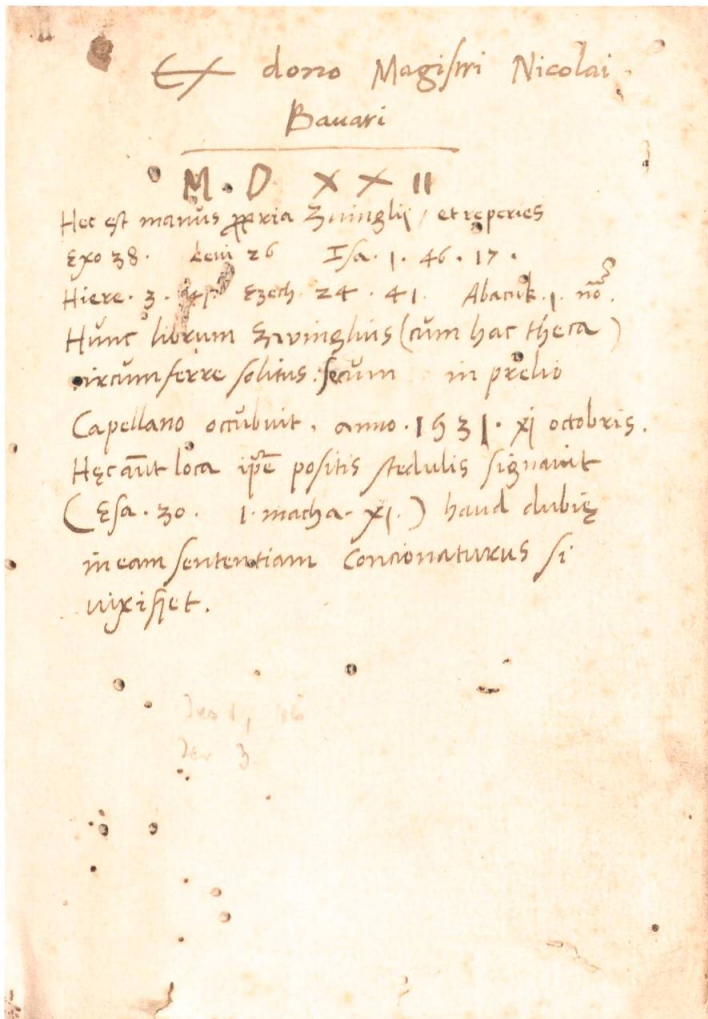 Ex dono Magistri Nicolai
Bavari
M. D XXII
Hec est manus ꝓpria Zuinglij, et reperies
Exo 38. Levi 26 Isa. 1. 46. 17.
Hiere. 3. Ezech. 24. 41. Abacuk. 1.
Hunc librum Zvinglius (cum hac theca)
circumferre solitus. secum in prelio
Capellano occubuit. anno. 1531. xj octobris.
Hęc aūt loca ip̄e positis scedulis signavit
(Esa. 30. 1. macha. XI.) haud dubię
in eam sententiam concionaturus si
vixisset.
Jer 3